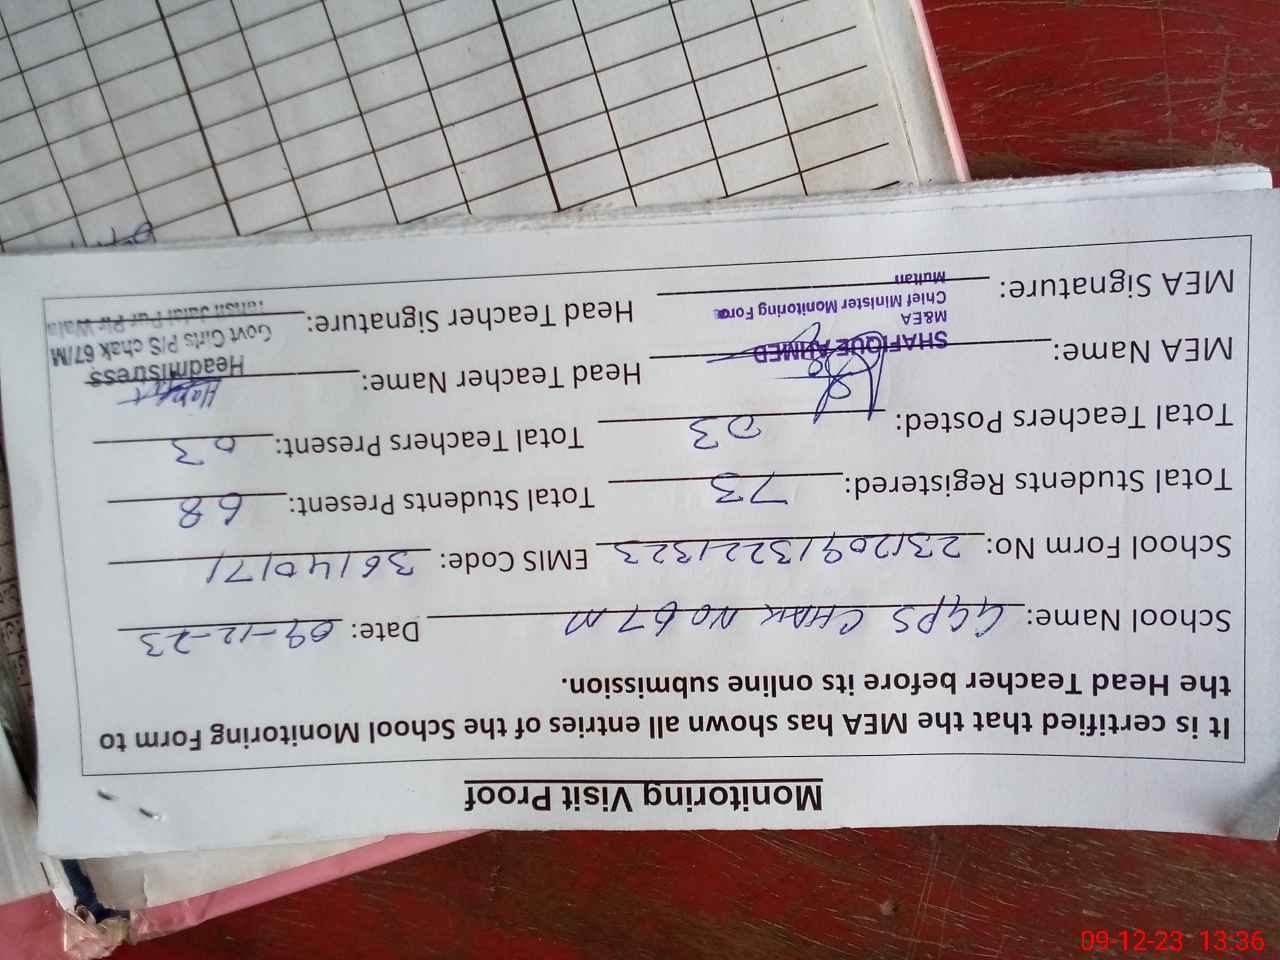 Monitoring Visit Proof
It is certified that the MEA has shown all entries of the School Monitoring Form to
the Head Teacher before its online submission.
School Name: GGPS CHAK NO 67 M Date: 09-12-23
School Form No: 23120913221323 EMIS Code: 36140171
Total Students Registered: 73 Total Students Present: 68
Total Teachers Posted: 03 Total Teachers Present: 03
MEA Name: SHAFIQUE AHMED Head Teacher Name: Headmistress
M&EA Govt Girls P/S chak 67/M
Chief Minister Monitoring Force Tehsil Jalal Pur Pir Wala
MEA Signature: Head Teacher Signature:
Multan
09-12-23 13:36